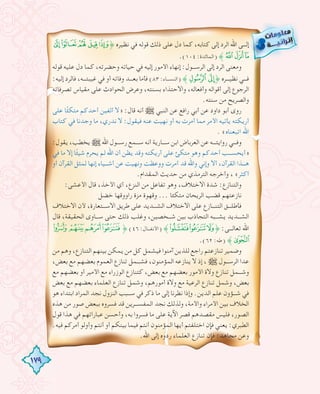 معلومات
إثرائية
إلى الله الرد إلى كتابه، كما دل على ذلك قوله في نظيره ﴿ وَإِذَا قِيلَ لَهُمْ تَعَالَوْا إِلَىٰ
مَا أَنْزَلَ اللَّهُ ﴾ (المائدة: ١٠٤).
ومعنى الرد إلى الرسول: إنهاء الأمور إليه في حياته وحضرته، كما دل عليه قوله
في نظيره ﴿ إِلَى الرَّسُولِ ﴾ (النساء: ٨٣) فأما بعد وفاته أو في غيبته، فالرد إليه:
الرجوع إلى أقواله وأفعاله، والاحتذاء بسنته، وعرض الحوادث على مقياس تصرفاته
والصريح من سنته.
روى أبو داود عن أبي رافع عن النبي ﷺ أنه قال: « لا ألفين أحدكم متكئا على
أريكته يأتيه الأمر مما أمرت به أو نهيت عنه فيقول: لا ندري، ما وجدنا في كتاب
الله اتبعناه ».
وفي روايته عن العرباض ابن سارية أنه سمع رسول الله ﷺ يخطب، يقول:
« أيحسب أحدكم وهو متكئ على أريكته وقد يظن أن الله لم يحرم شيئا إلا ما في
هذا القرآن، ألا وإني والله قد أمرت ووعظت ونهيت عن أشياء إنها لمثل القرآن أو
أكثر »، وأخرجه الترمذي من حديث المقدام.
والتنازع: شدة الاختلاف، وهو تفاعل من النزع، أي الأخذ، قال الأعشى:
نازعتهم قضب الريحان متكئا ... وقهوة مزة راووقها خضل
فأطلق التنازع على الاختلاف الشديد على طريق الاستعارة، لأن الاختلاف
الشديد يشبه التجاذب بين شخصين، وغلب ذلك حتى ساوى الحقيقة، قال
الله تعالى: ﴿ وَلَا تَنَازَعُوا فَتَفْشَلُوا ﴾ (الأنفال: ٤٦) ﴿ فَتَنَازَعُوا أَمْرَهُمْ بَيْنَهُمْ وَأَسَرُّوا
النَّجْوَىٰ ﴾ (طه: ٦٢).
وضمير تنازعتم راجع للذين آمنوا فيشمل كل من يمكن بينهم التنازع، وهم من
عدا الرسول ﷺ، إذ لا ينازعه المؤمنون، فشمل تنازع العموم بعضهم مع بعض،
وشمل تنازع ولاة الأمور بعضهم مع بعض، كتنازع الوزراء مع الأمير أو بعضهم مع
بعض، وشمل تنازع الرعية مع ولاة أمورهم، وشمل تنازع العلماء بعضهم مع بعض
في شؤون علم الدين. وإذا نظرنا إلى ما ذكر في سبب النزول نجد المراد ابتداء هو
الخلاف بين الأمراء والأمة، ولذلك نجد المفسرين قد فسروه ببعض صور من هذه
الصور، فليس مقصدهم قصر الآية على ما فسروا به، وأحسن عباراتهم في هذا قول
الطبري: يعني فإن اختلفتم أيها المؤمنون أنتم فيما بينكم أو أنتم وأولو أمركم فيه.
وعن مجاهد: فإن تنازع العلماء ردوه إلى الله.
١٧٩